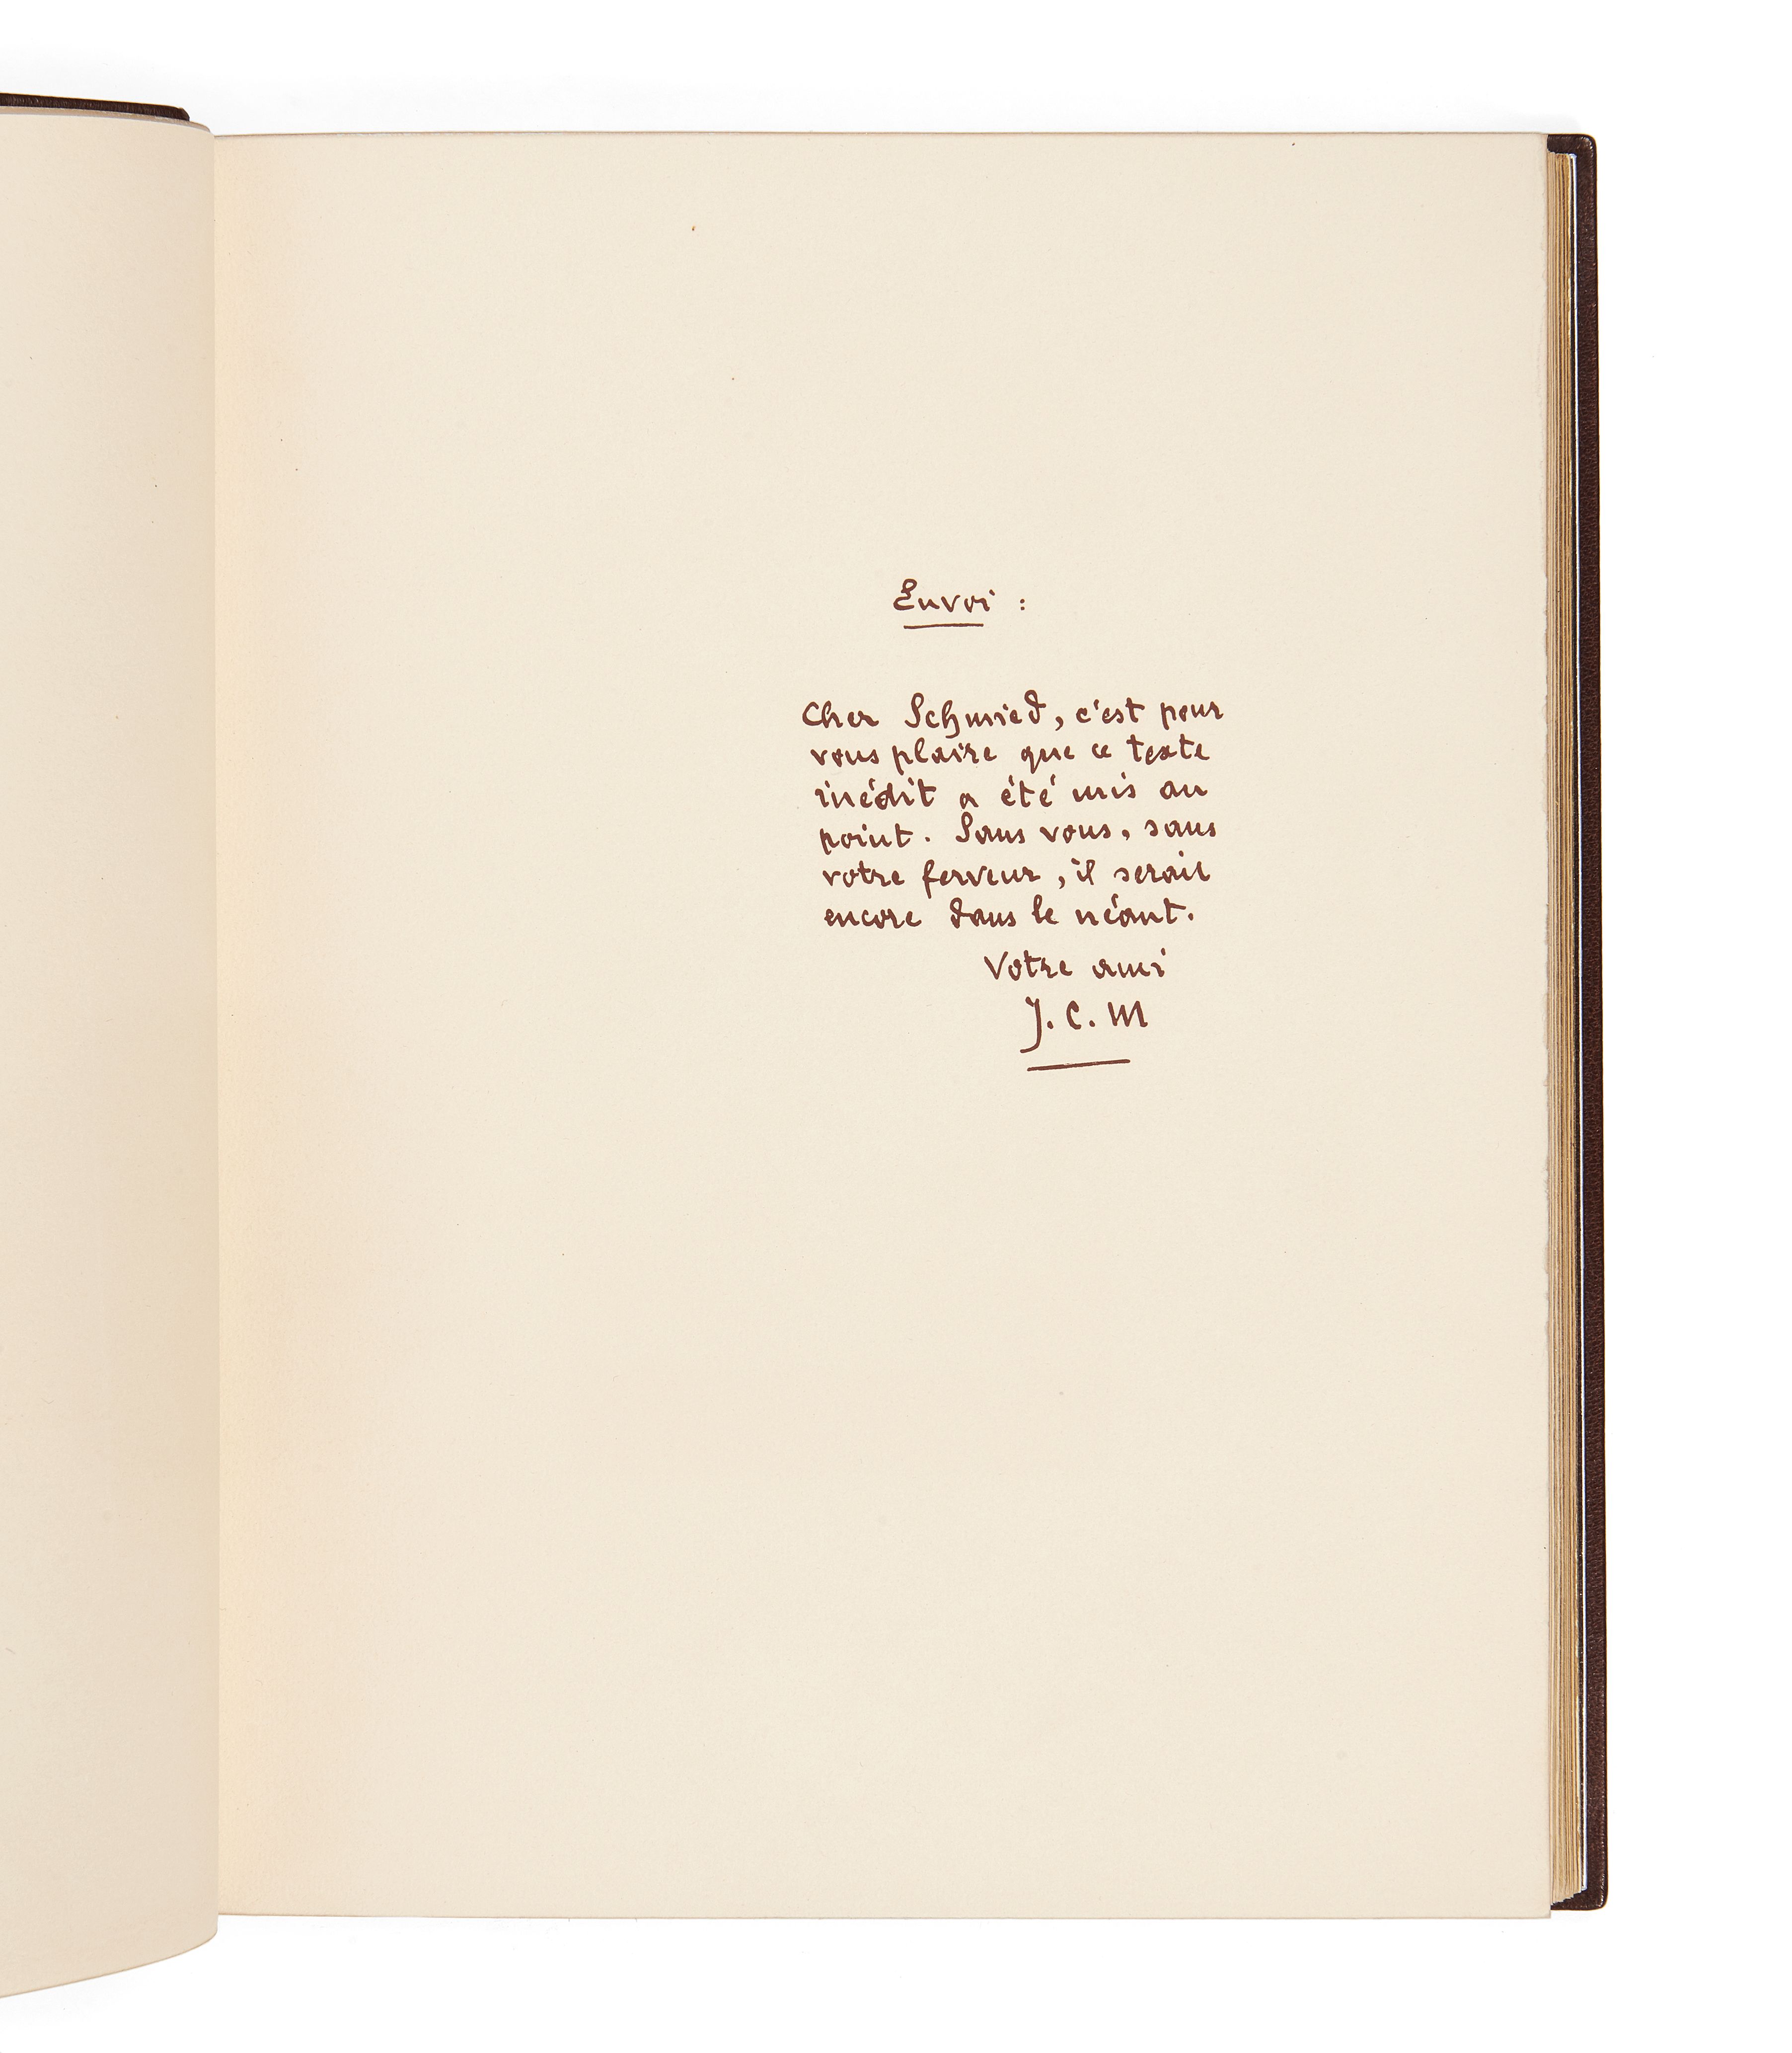 Envoi :
Cher Schmied, c'est pour
vous plaire que ce texte
inédit a été mis au
point. Sans vous, sans
votre ferveur, il serait
encore dans le néant.
Votre ami
J. C. M